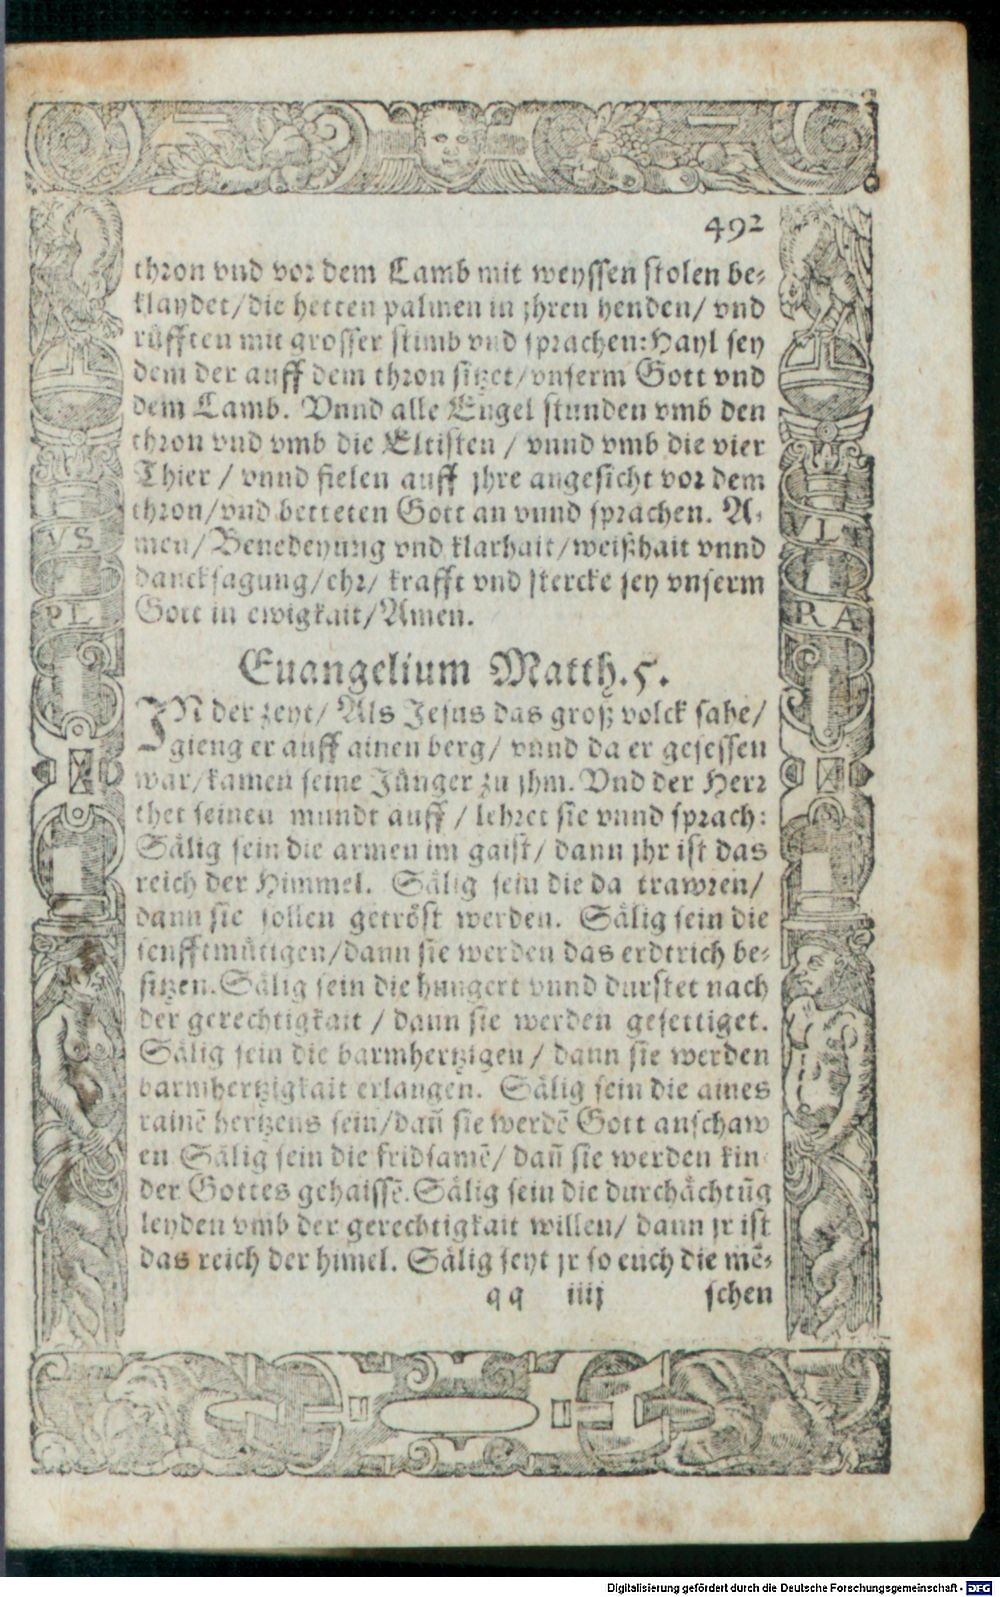 492
thron vnd vor dem Lamb mit weyssen stolen be-
klaydet/die hetten palmen in jhren henden/ vnd
rüfften mit grosser stimb vnd sprachen: Hayl sey
dem der auff dem thron sitzet/vnserm Gott vnd
dem Lamb. Vnnd alle Engel stunden vmb den
thron vnd vmb die Eltisten / vnnd vmb die vier
Thier / vnnd fielen auff jhre angesicht vor dem
thron/vnd betteten Gott an vnnd sprachen. A-
men/Benedeyung vnd klarhait/weißhait vnnd
dancksagung/ehr/ krafft vnd stercke sey vnserm
Gott in ewigkait/Amen.
Euangelium Matth.5.
IN der zeyt/ Als Jesus das groß volck sahe/
gieng er auff ainen berg/ vnnd da er gesessen
war/kamen seine Jünger zu jhm. Vnd der Herr
thet seinen mundt auff / lehret sie vnnd sprach:
Sälig sein die armen im gaist/ dann jhr ist das
reich der Himmel. Sälig sein die da trawren/
dann sie sollen getröst werden. Sälig sein die
senfftmütigen/dann sie werden das erdtrich be-
sitzen. Sälig sein die hungert vnnd durstet nach
der gerechtigkait / dann sie werden gesettiget.
Sälig sein die barmhertzigen / dann sie werden
barmhertzigkait erlangen. Sälig sein die aines
rainē hertzens sein/dañ sie werdē Gott anschaw
en Sälig sein die fridsamē/ dañ sie werden kin-
der Gottes gehaissē. Sälig sein die durchächtūg
leyden vmb der gerechtigkait willen/ dann jr ist
das reich der himel. Sälig seyt jr so euch die mē-
qq iiij schen
VS
PL
VLT
RA
Digitalisierung gefördert durch die Deutsche Forschungsgemeinschaft - DFG